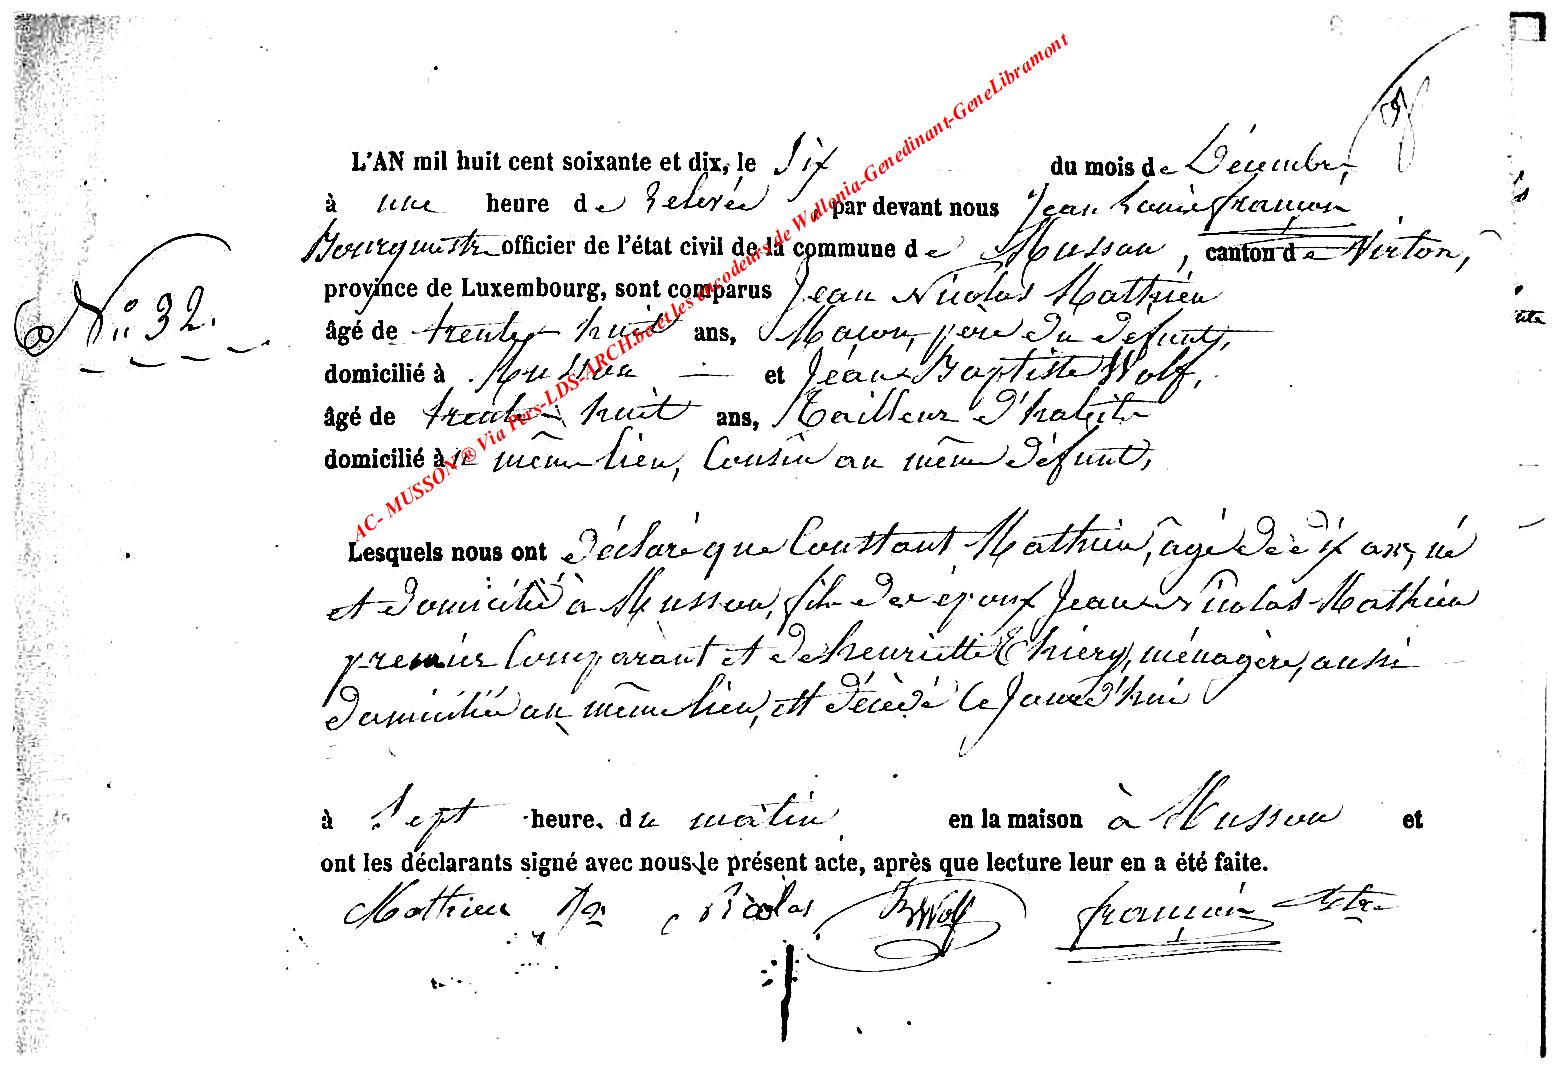 L'AN mil huit cent soixante et dix, le Six du mois de Décembre,
à une heure de relevée, par devant nous Jean Louis françois
Bourgmestre officier de l'état civil de la commune de Musson, canton de Virton,
N° 32.
province de Luxembourg, sont comparus Jean Nicolas Mathieu
âgé de trente huit ans, Macon, père du défunt,
domicilié à Musson — et Jean Baptiste Wolf,
âgé de trente huit ans, Tailleur d'habits
domicilié au même lieu, Cousin au même défunt,
AC- MUSSON ® Via Pers-LDS-ARCH.be et les encodeurs de Wallonia-Genedinant-GeneLibramont
Lesquels nous ont déclaré que Constant Mathieu, âgé de six ans, né
et domicilié à Musson, fils des époux Jean Nicolas Mathieu
premier Comparant et de henriette Thiery, ménagère, aussi
domiciliée au même lieu, est décédé ce Jourd'hui
à Sept heure. du matin en la maison à Musson et
ont les déclarants signé avec nous le présent acte, après que lecture leur en a été faite.
Mathieu Jn Nicolas JBWolf françois